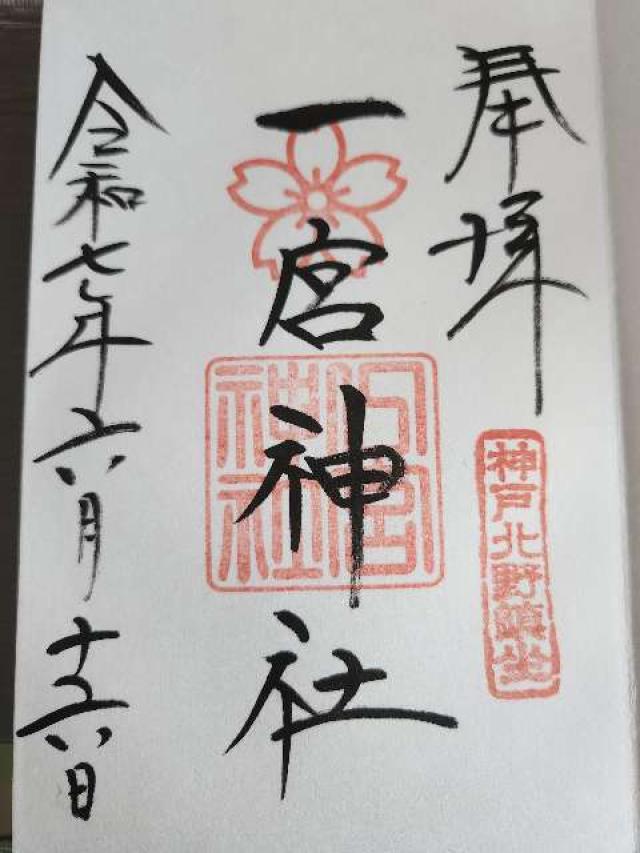 奉拝
神戸北野鎮坐
一宮神社
令和七年六月十六日